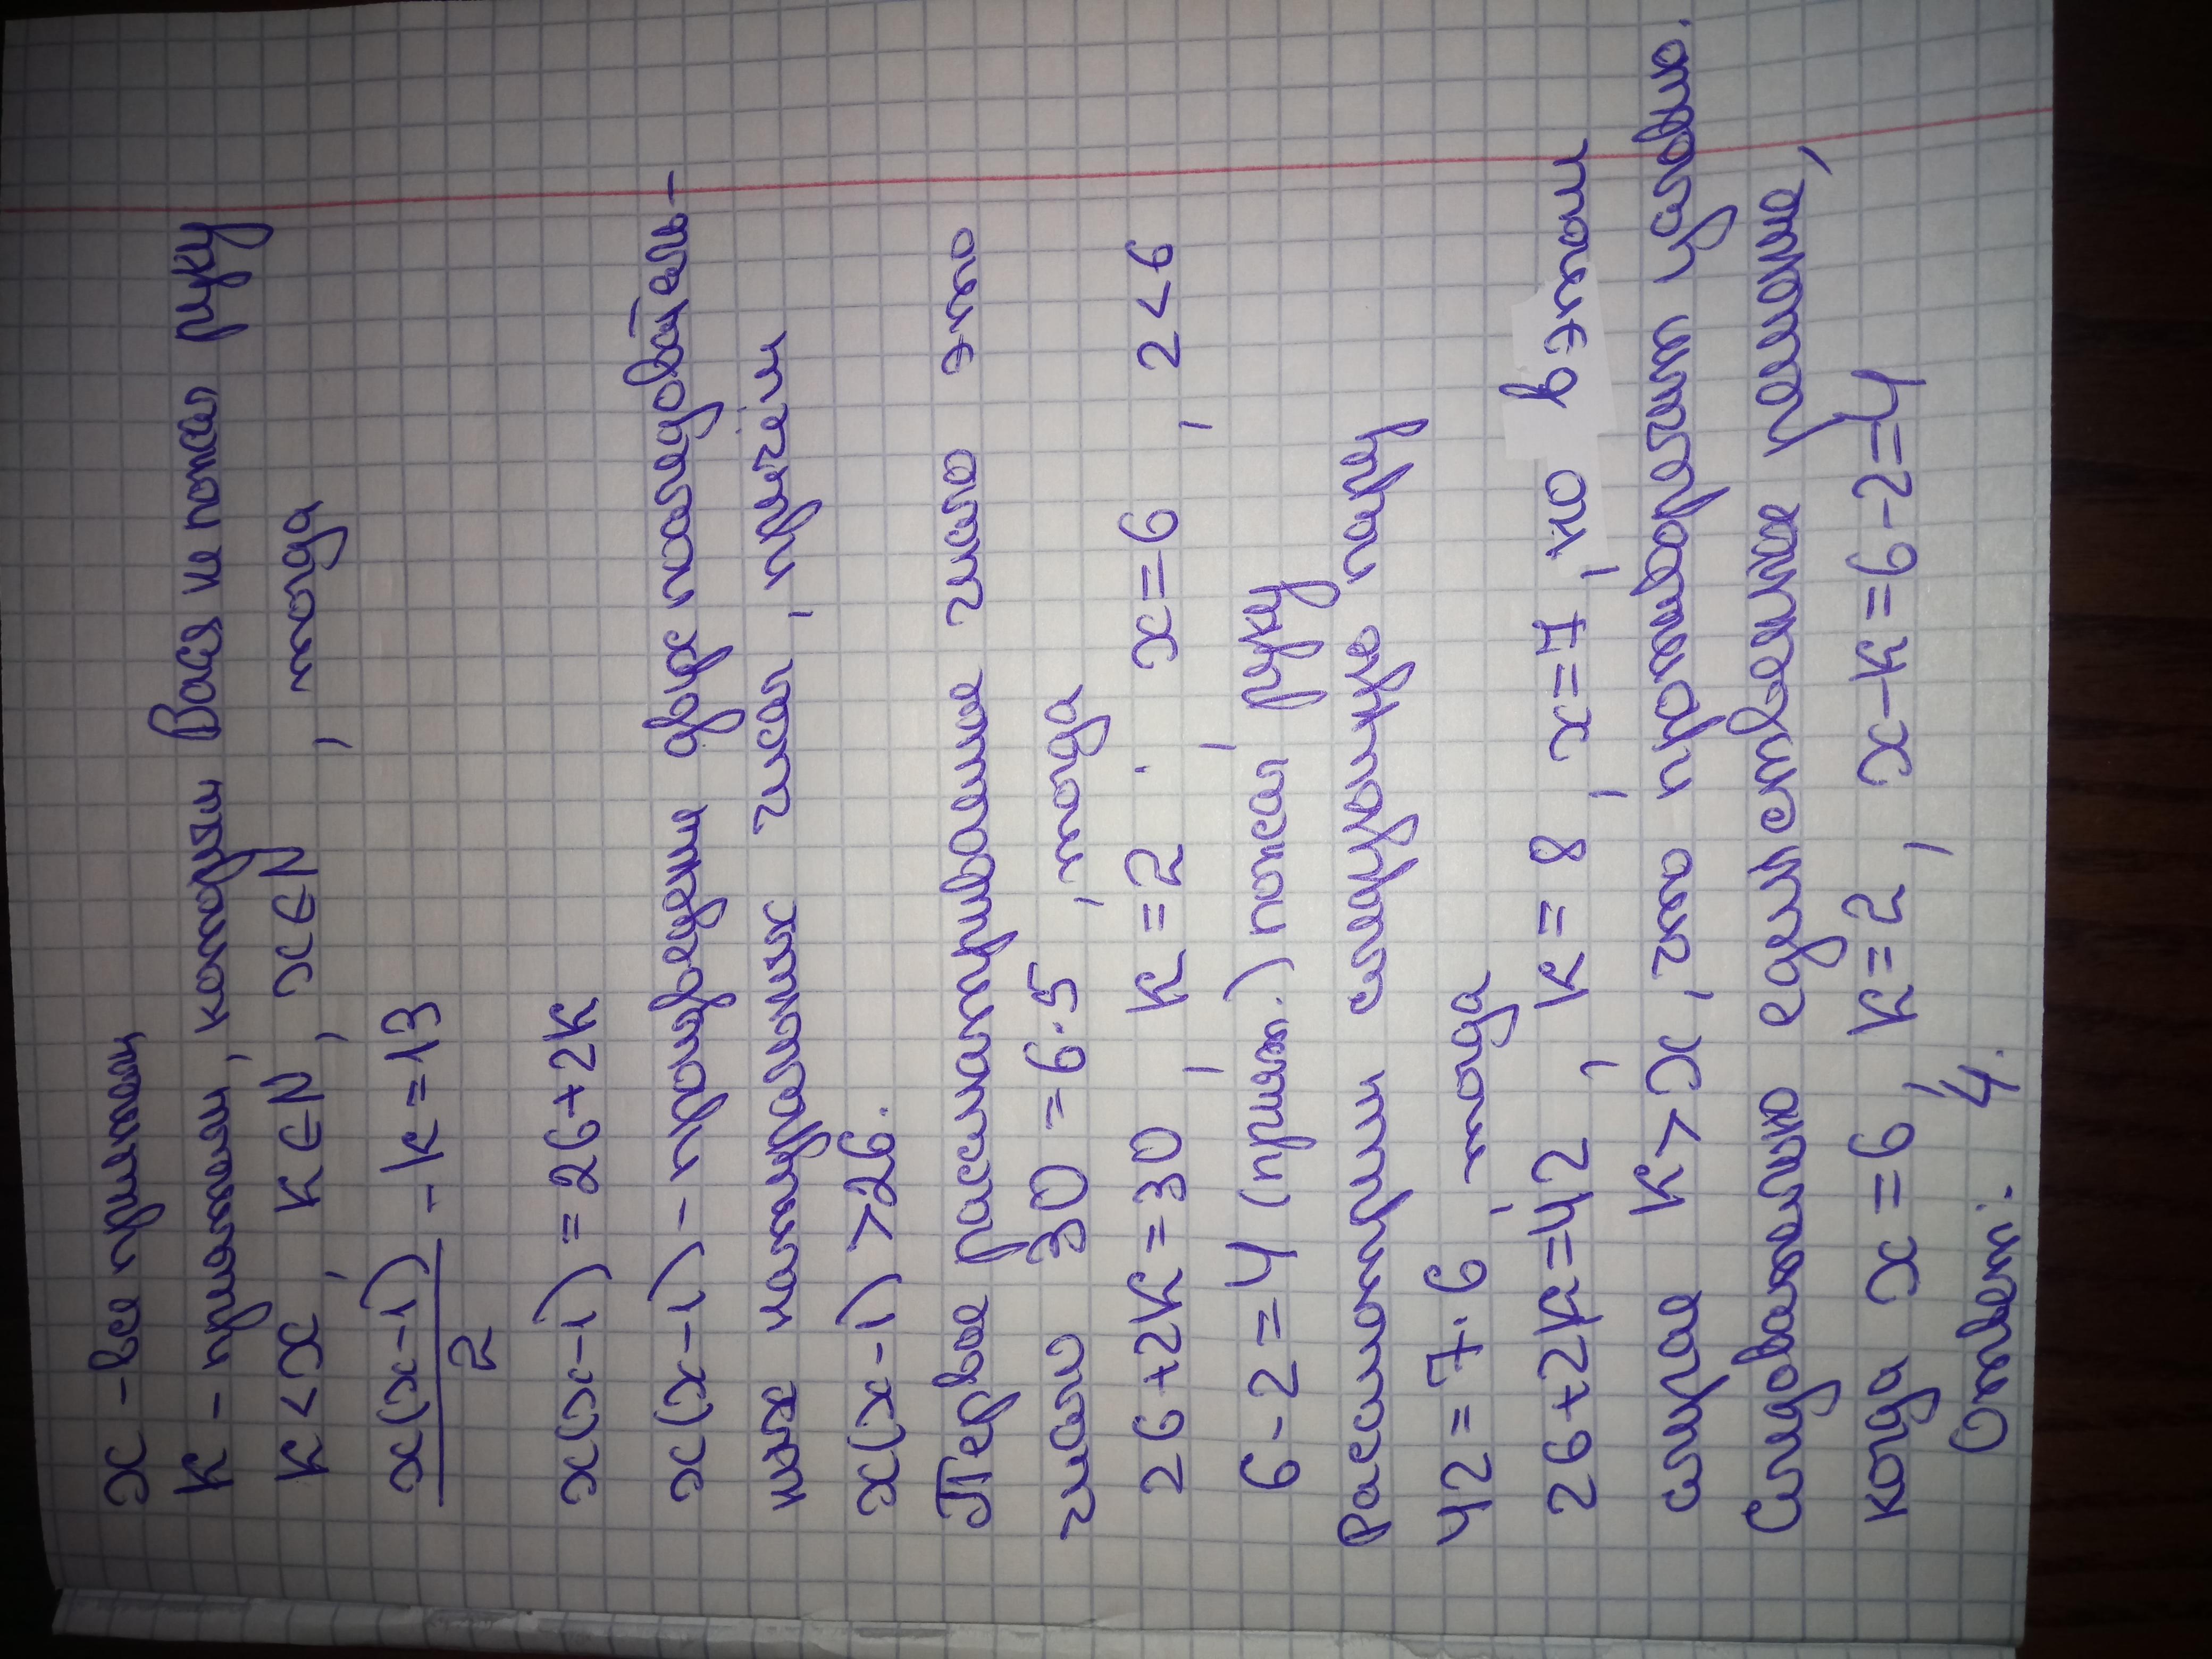 x - все приятели
k - приятели, которым Вася не пожал руку
k < x, k ∈ N, x ∈ N, тогда
x(x-1)/2 - k = 13
x(x-1) = 26 + 2k
x(x-1) - произведение двух последователь-
ных натуральных чисел, причём
x(x-1) > 26.
Первое расположенное число это
число 30 = 6·5, тогда
26 + 2k = 30, k = 2, x = 6, 2 < 6
6 - 2 = 4 (прият.) пожал руку
42 = 7·6, тогда
26 + 2k = 42, k = 8, x = 7, но в этом
случае k > x,
Следовательно единственное решение,
когда x = 6, k = 2, x - k = 6 - 2 = 4
Ответ: 4.